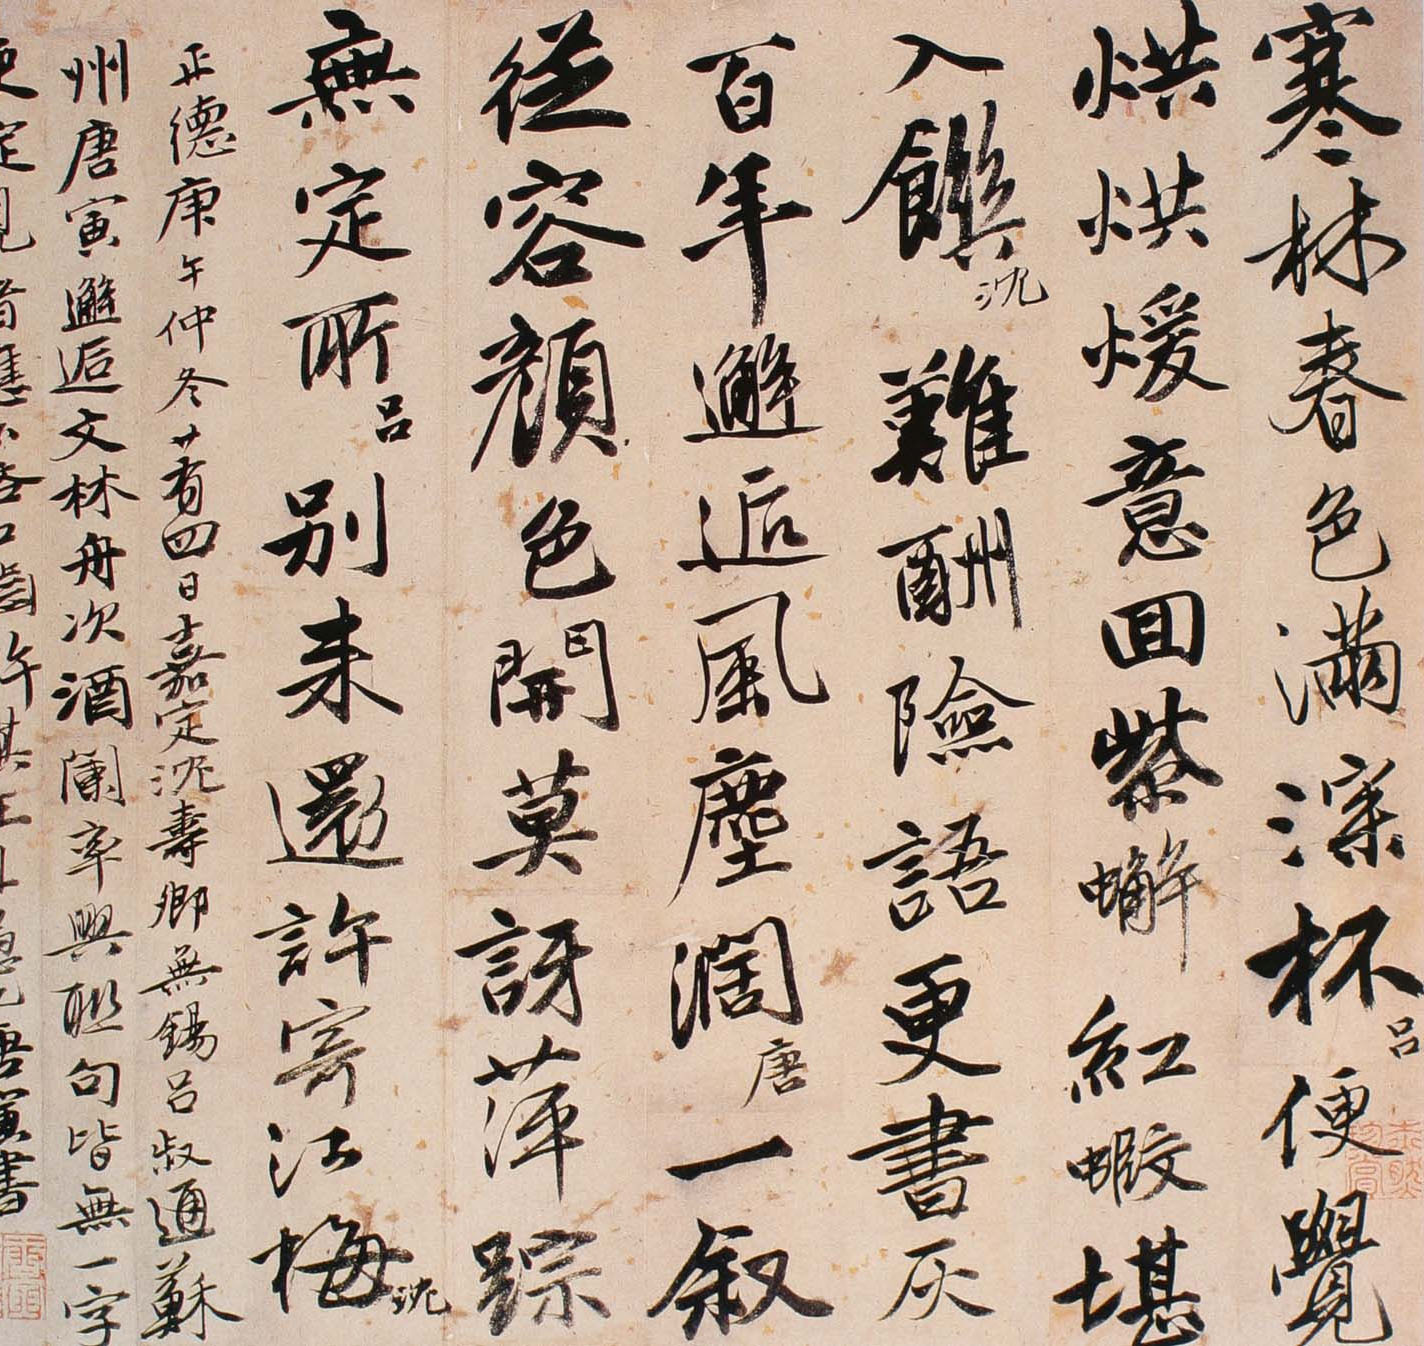 寒林春色滿深杯吕便覺
烘烘煖意回紫蠏紅蝦堪
入饌沈難酬險語更書灰
百年邂逅風塵濶唐一叙
從容顔色開莫訝萍踪
無定所吕别来還許寄江梅沈
正德庚午仲冬廿有四日嘉定沈壽卿無錫吕叔通蘇
州唐寅邂逅文林舟次酒闌率興聮句皆無一字
更定見者應不吝口齒許其狂且愚也唐寅書